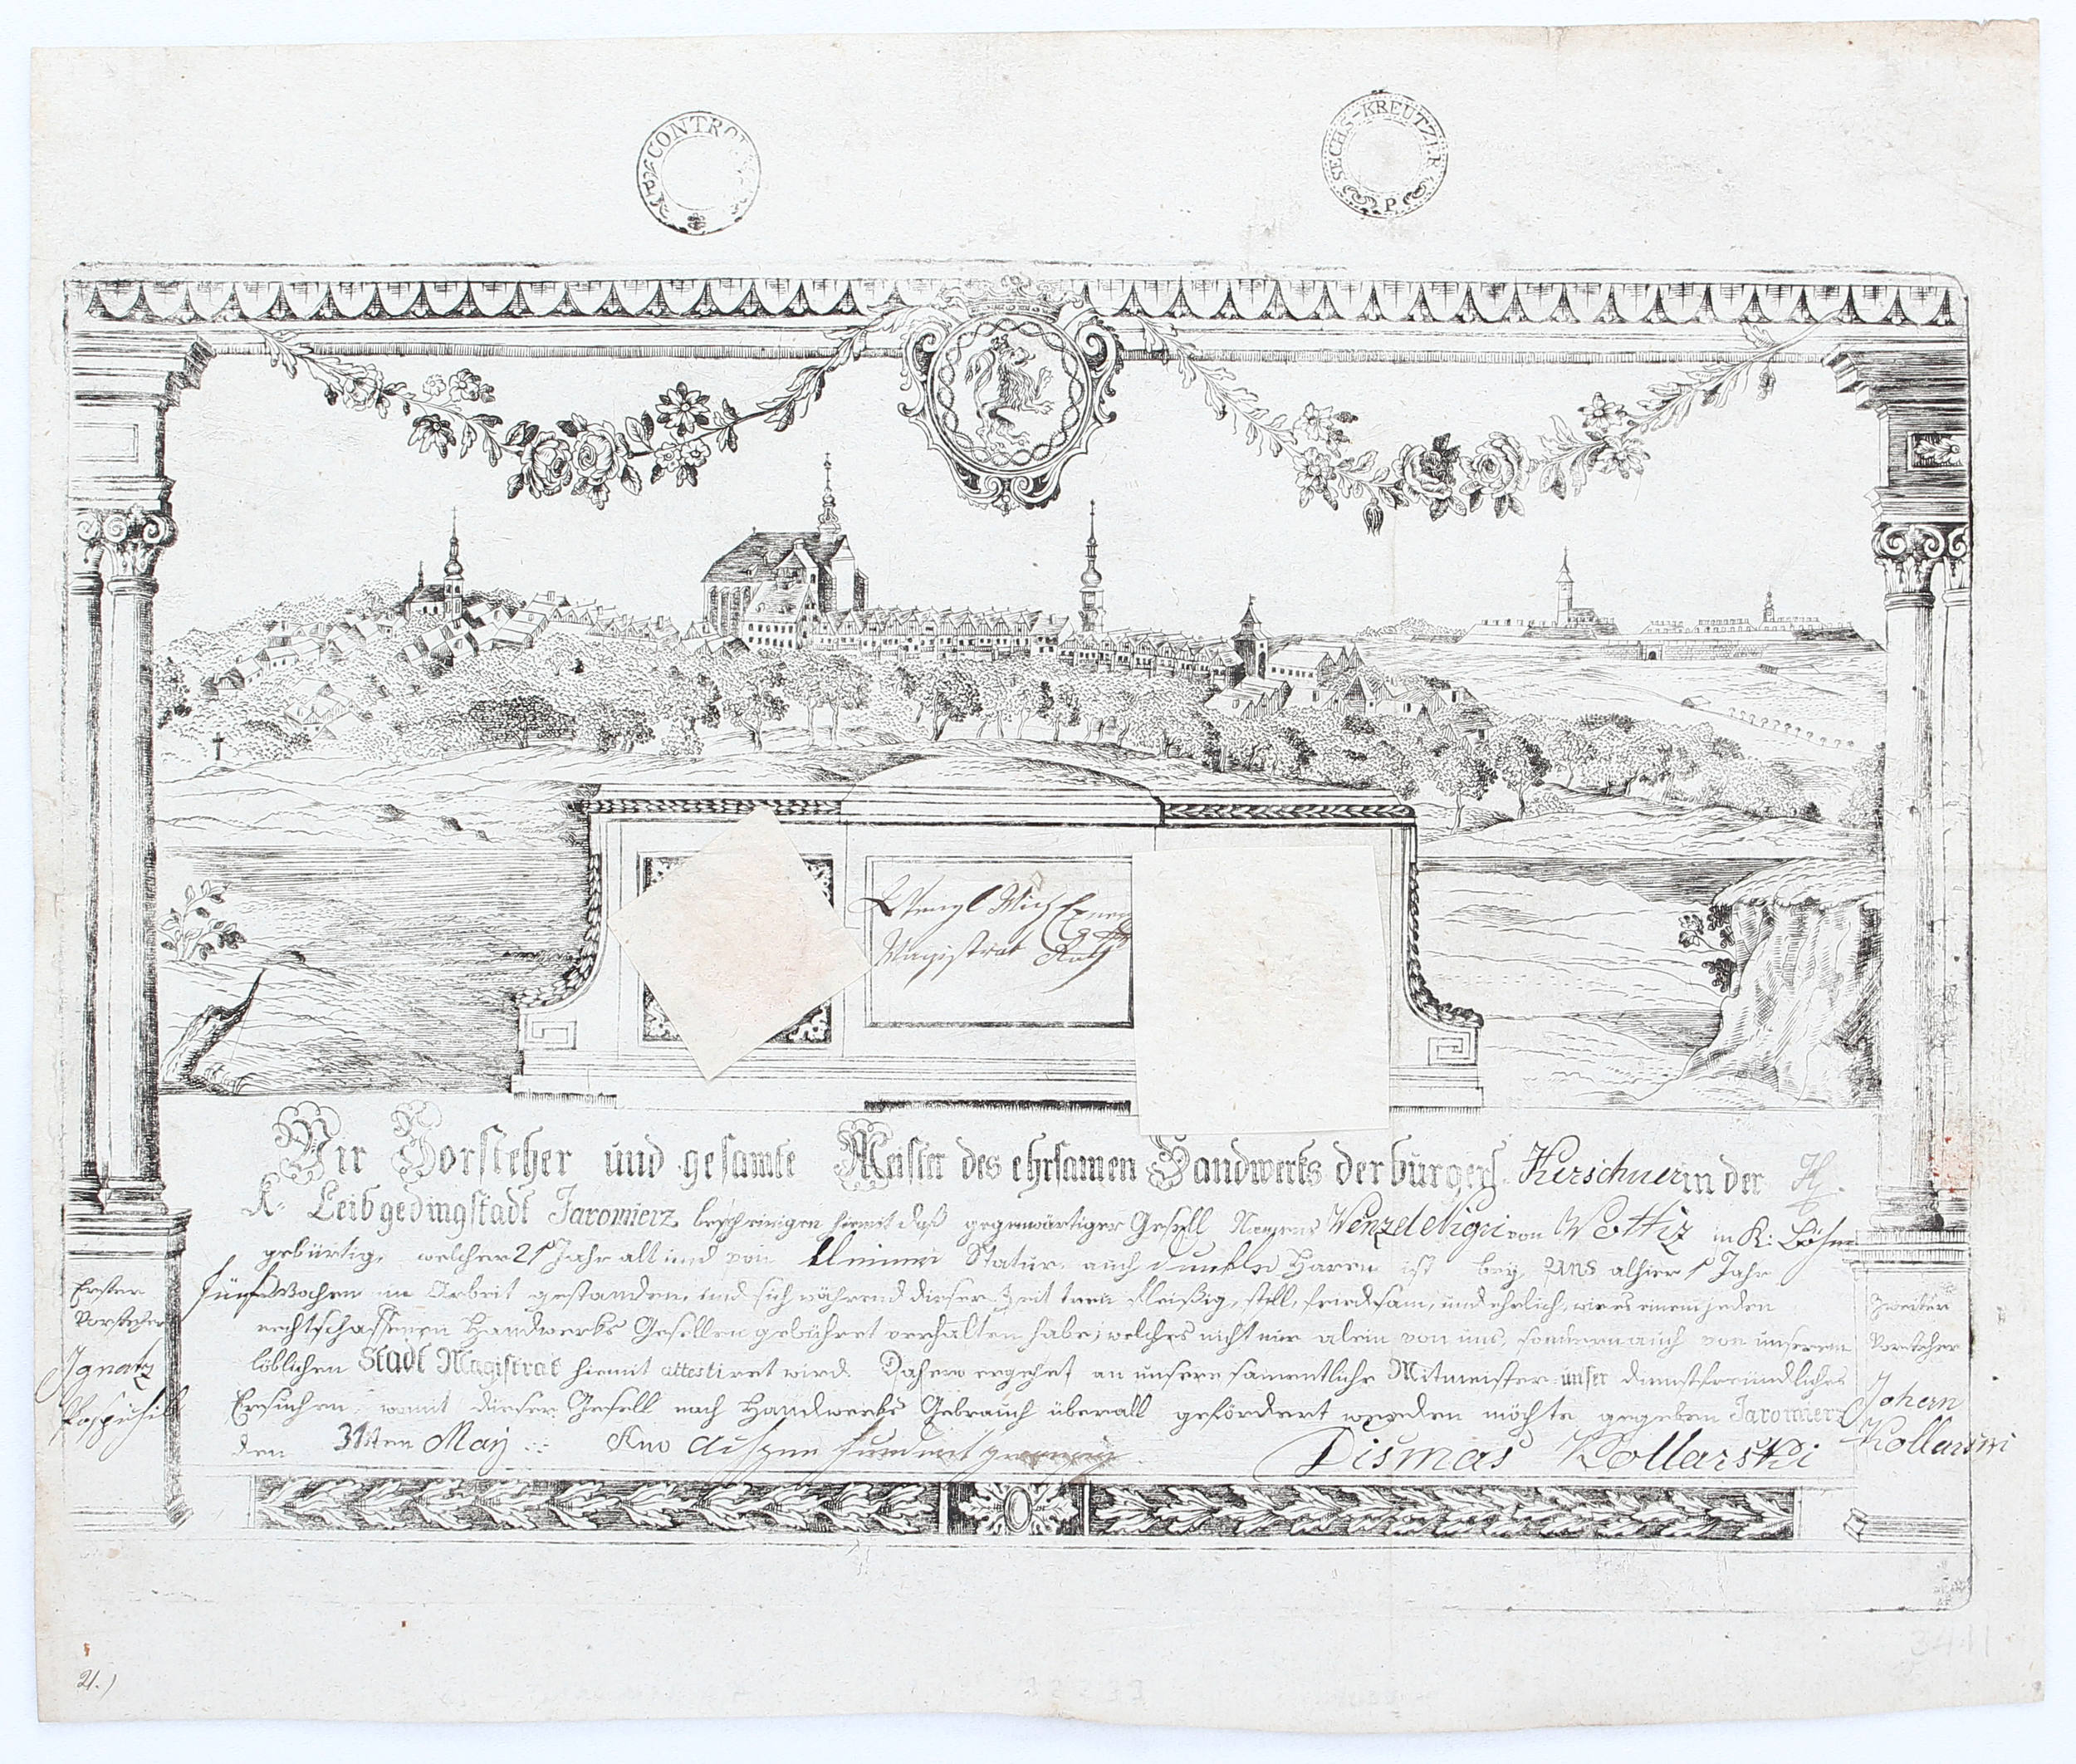 CONTRO
P
SECHS-KREUTZER
P
Magistrat Rath
Wir Vorsteher und gesamte Meister des ehrsamen Handwerks der burgerl. Kerschner in der
K: Leibgedingstadt Jaromierz bescheinigen hiemit daß gegenwärtiger Gesell Namens Wenzel von Wottiz in K: Böhm
gebürtig, welcher 21 Jahr alt und von kleiner Statur, auch dunkle Haren ist bey uns alhier 1 Jahr
fünf Wochen in Arbeit gestanden, und sich während dieser Zeit treu fleißig, still, friedsam, und ehrlich, wie es einem jeden
rechtschaffenen Handwerks Gesellen gebühret verhalten habe; welches nicht nur alein von uns, sondern auch von unserem
löblichen Stadt Magistrat hiemit attestiret wird. Dahero ergehet an unsere samentliche Mitmeister unser dienstfreundliches
Ersuchen, womit dieser Gesell nach Handwerks Gebrauch überall gefördert werden möchte gegeben Jaromierz
den 31ten May Ano
Dismas Kollarski
Erster
Vorsteher
Ignatz
Pospischil
Zweiter
Vorsteher
Johann
Kollarski
21.)